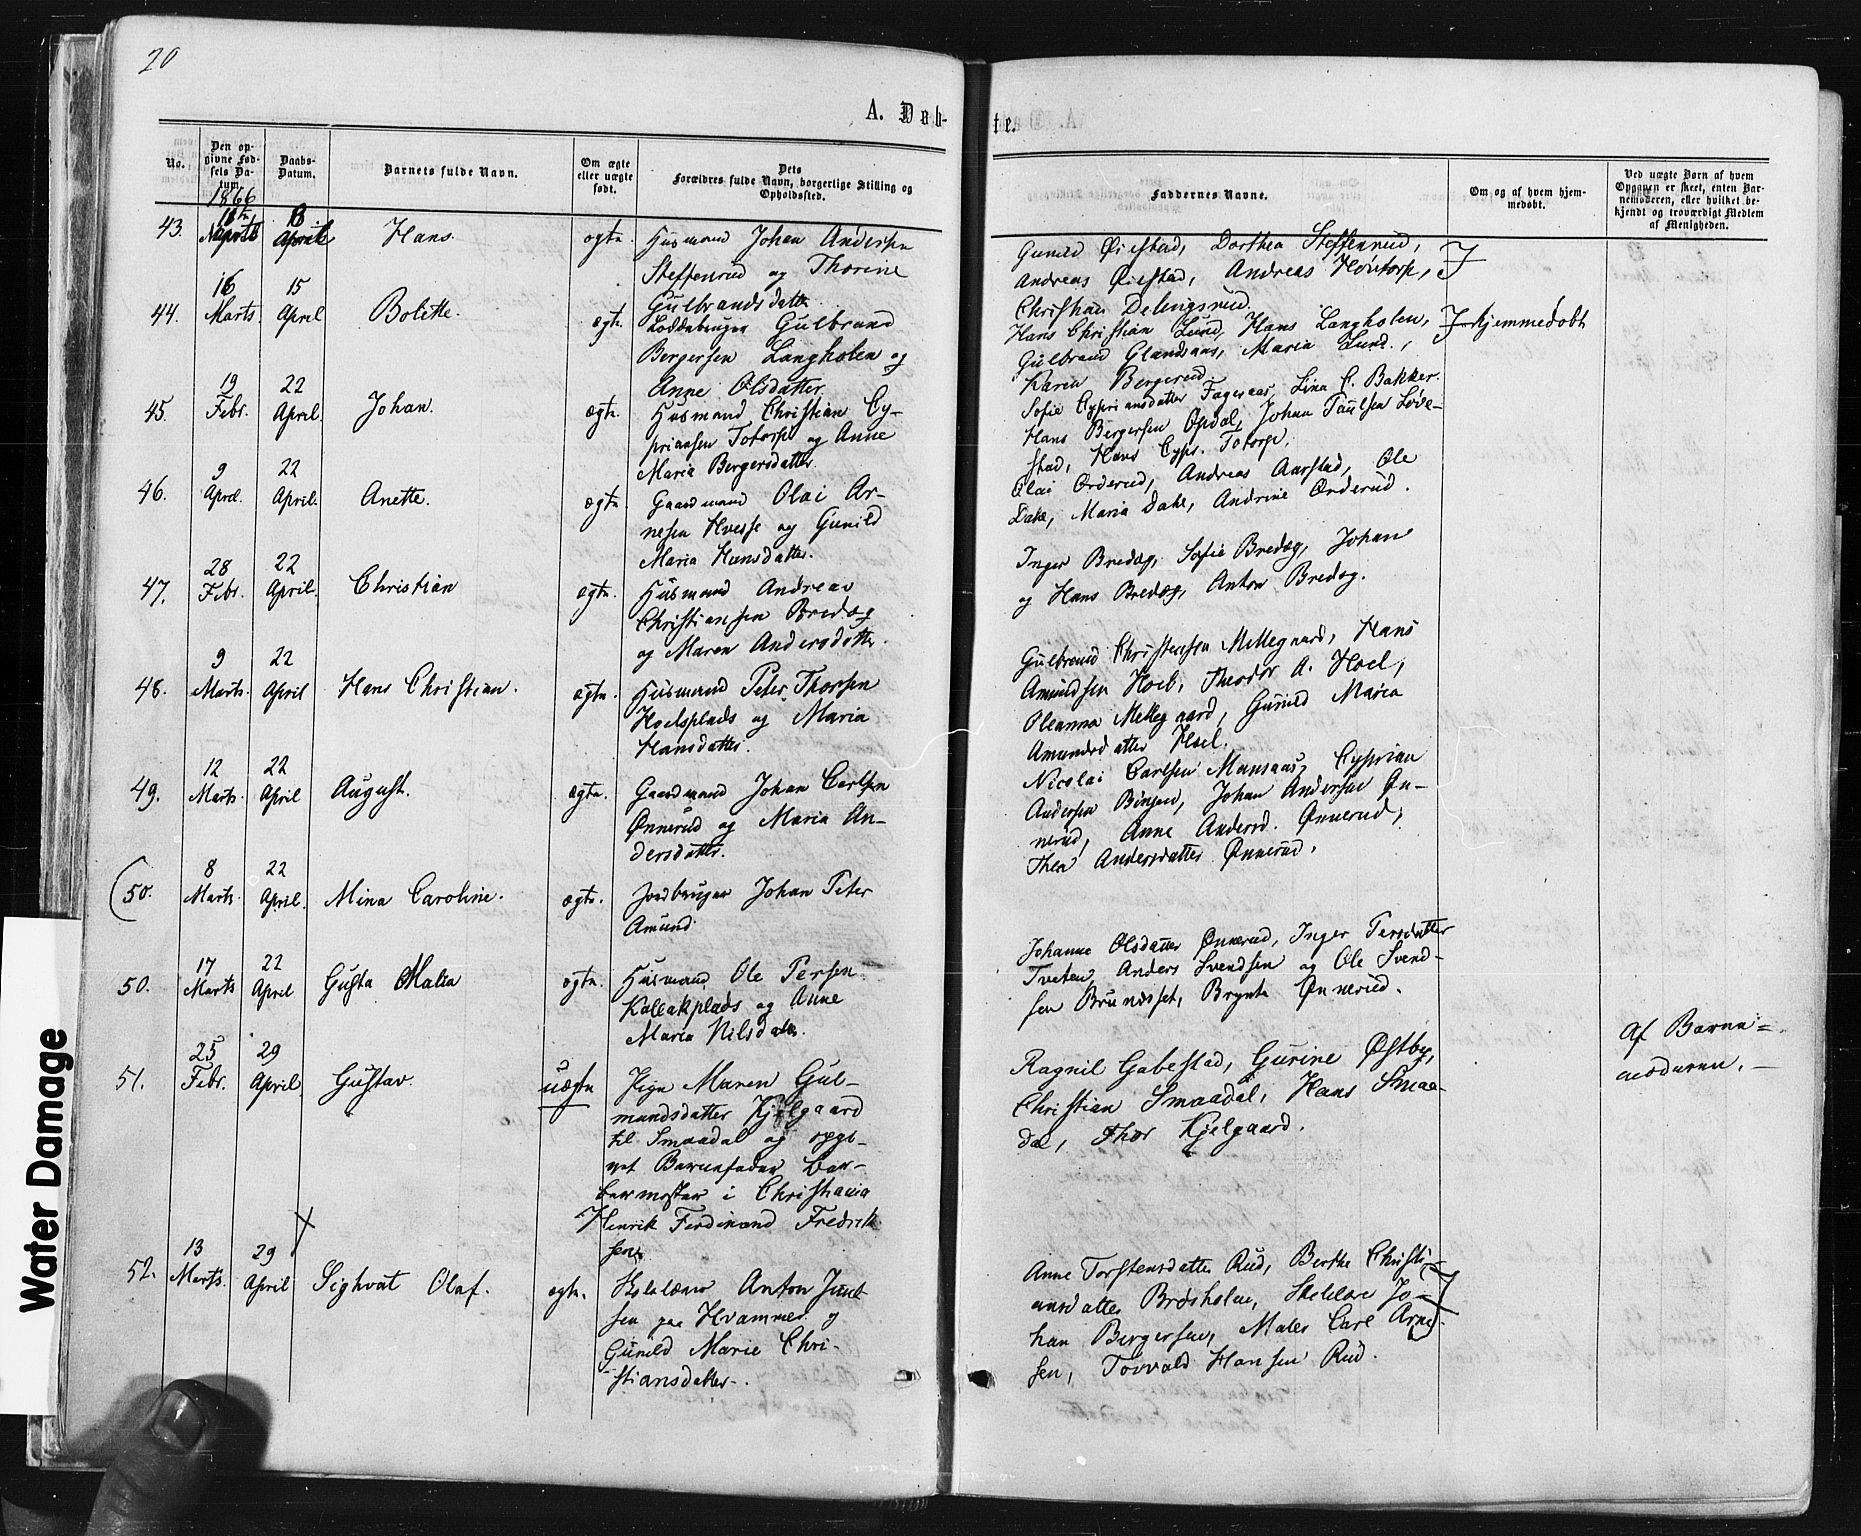 20
A. Døb-
te.
No.
Den op-
givne Fød-
sels Da-
tum.
1866
Daabs-
Datum.
Barnets fulde Navn.
Om ægte
eller uægte
født.
Dets
Forældres fulde Navn, borgerlige Stilling og
Opholdssted.
Faddernes Navne.
Om og af hvem hjem-
medøbt.
Ved uægte Børn af hvem
Opgaven er skeet, enten Bar-
nemoderen, eller hvilket be-
kjendt og troværdigt Medlem
af Menigheden.
43.
April
Hans.
ægte
Husmand Johan Andersen
Steffenrud og Thorine
Gulbrandsdatter
Gunild Øiestad, Dorthea Steffenrud,
Andreas Øiestad, Andreas Høitorp,
Christian Delingsrud.
44.
16
Marts.
15
April
Bolette.
ægte
Gulbrand
Bergersen Langholen og
Anne Olsdatter.
Hans Christian Lund, Hans Langholen,
Gulbrand Glandsaas, Maria Lund.,
Karen Bergerud.
Hjemmedøbt
45.
19
Febr.
22
April.
Johan.
ægte.
Husmand Christian Cy-
priansen Totorp og Anne
Maria Bergersdatter.
Sofie Cypriansdatter Fageraas, Lina C. Bakker.
Hans Bergersen Opdal, Johan Paulsen Løve-
stad, Hans Cypr. Totorp.
46.
9
April.
22
April.
Anette.
ægte.
Gaardmand Olai Ar-
nesen Hvesse og Gunild
Maria Hansdatter.
Olai Orderud, Andreas Aarstad, Ole
Dake, Maria Dake, Andrine Orderud.
47.
28
Febr.
22
April.
Christian
ægte.
Husmand Andreas
Christiansen Bredøg
og Maren Andersdatter.
Inger Bredøg, Sofie Bredøg, Johan
og Hans Bredøg, Anton Bredøg.
48.
9
Marts.
22
April
Hans Christian.
ægte.
Husmand Peter Thorsen
Hoelsplads og Maria
Hansdatter.
Gulbrand Christensen Mellegaard, Hans
Amundsen Hoel, Theodor A. Hoel,
Oleanna Mellegaard, Gunild Maria
Amundsdatter Hoel.
49.
12
Marts.
22
April
August.
ægte.
Gaardmand Johan Carlsen
Ønnerud og Maria An-
dersdatter.
Nicolai Carlsen Monsaas, Cyprian
Andersen Bingen, Johan Andersen Øn-
nerud, Anne Andersd. Ønnerud,
Thea Andersdatter Ønnerud.
(50.
8
Marts.
22
April.
Mina Caroline.
ægte.
Jordbruger Johan Peter
Amund
50.
17
Marts
22
April
Gusta Malia
ægte.
Husmand Ole Persen
Kollakplads og Anne
Maria Nilsdatter.
Johanne Olsdatter Ønnerud, Inger Persdatter
Tveten, Anders Svendsen og Ole Svend-
sen Brunæset, Brynte Ønnerud.
51.
25
Febr.
29
April
Gustav.
uægte
Pige Maren Gul-
mundsdatter Kjelgaard
til Smaadal og opgi-
vet Barnefader Bar-
bermester i Christiania
Henrik Ferdinand Fredrik-
sen.
Ragnil Gabestad, Gurine Østby,
Christian Smaadal, Hans Smaa-
dal, Thor Kjelgaard.
Af Barne-
moderen. —
52.
13
Marts.
29
April
Sighvat Olaf.
ægte.
Skolelærer Anton Juul-
sen paa Hvammer og
Gunild Marie Chri-
stiansdatter.
Anne Torstensdatter Rud, Berthe Christi-
ansdatter Bråsholen, Skolelærer Jo-
han Bergersen, Maler Carl Arne-
sen, Torvald Hansen Rud.
Water Damage